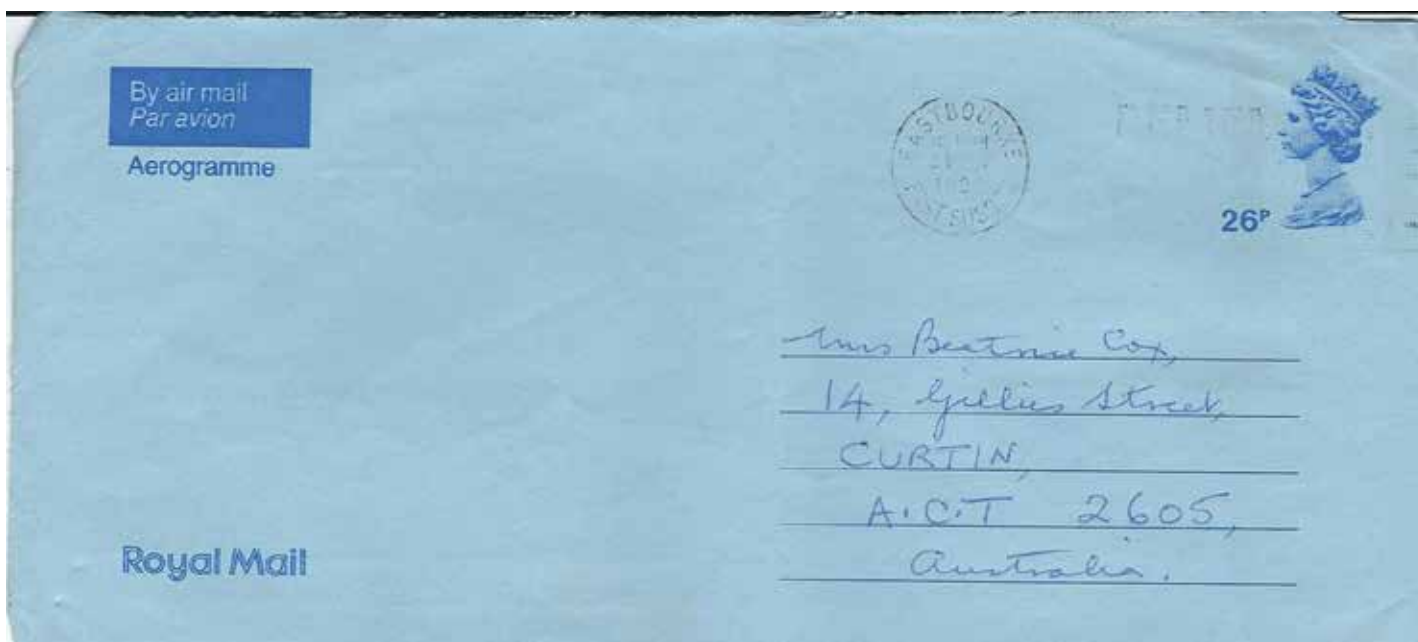 By air mail
Par avion
Aerogramme
EASTBOURNE
EAST SUSSEX
26P
Mrs Beatrice Cox,
14, Gillies Street,
CURTIN,
A.C.T 2605,
Australia.
Royal Mail